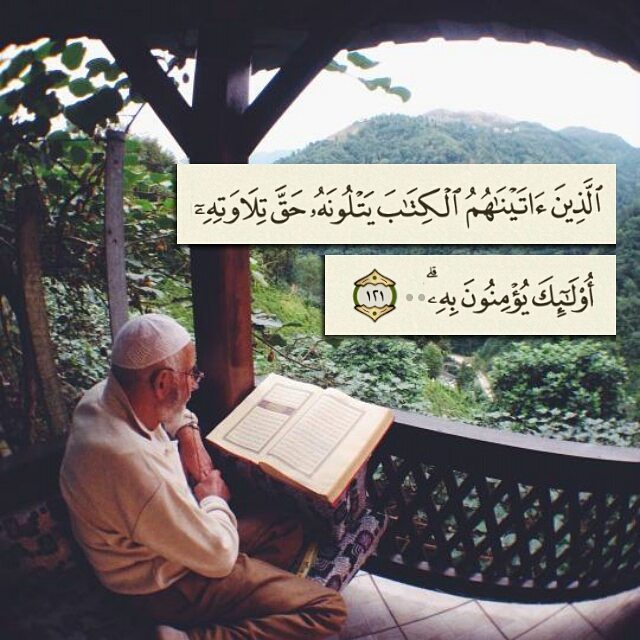 ٱلَّذِينَ ءَاتَيۡنَٰهُمُ ٱلۡكِتَٰبَ يَتۡلُونَهُۥ حَقَّ تِلَاوَتِهِۦٓ
أُوْلَٰٓئِكَ يُؤۡمِنُونَ بِهِۦۗ .. ١٢١